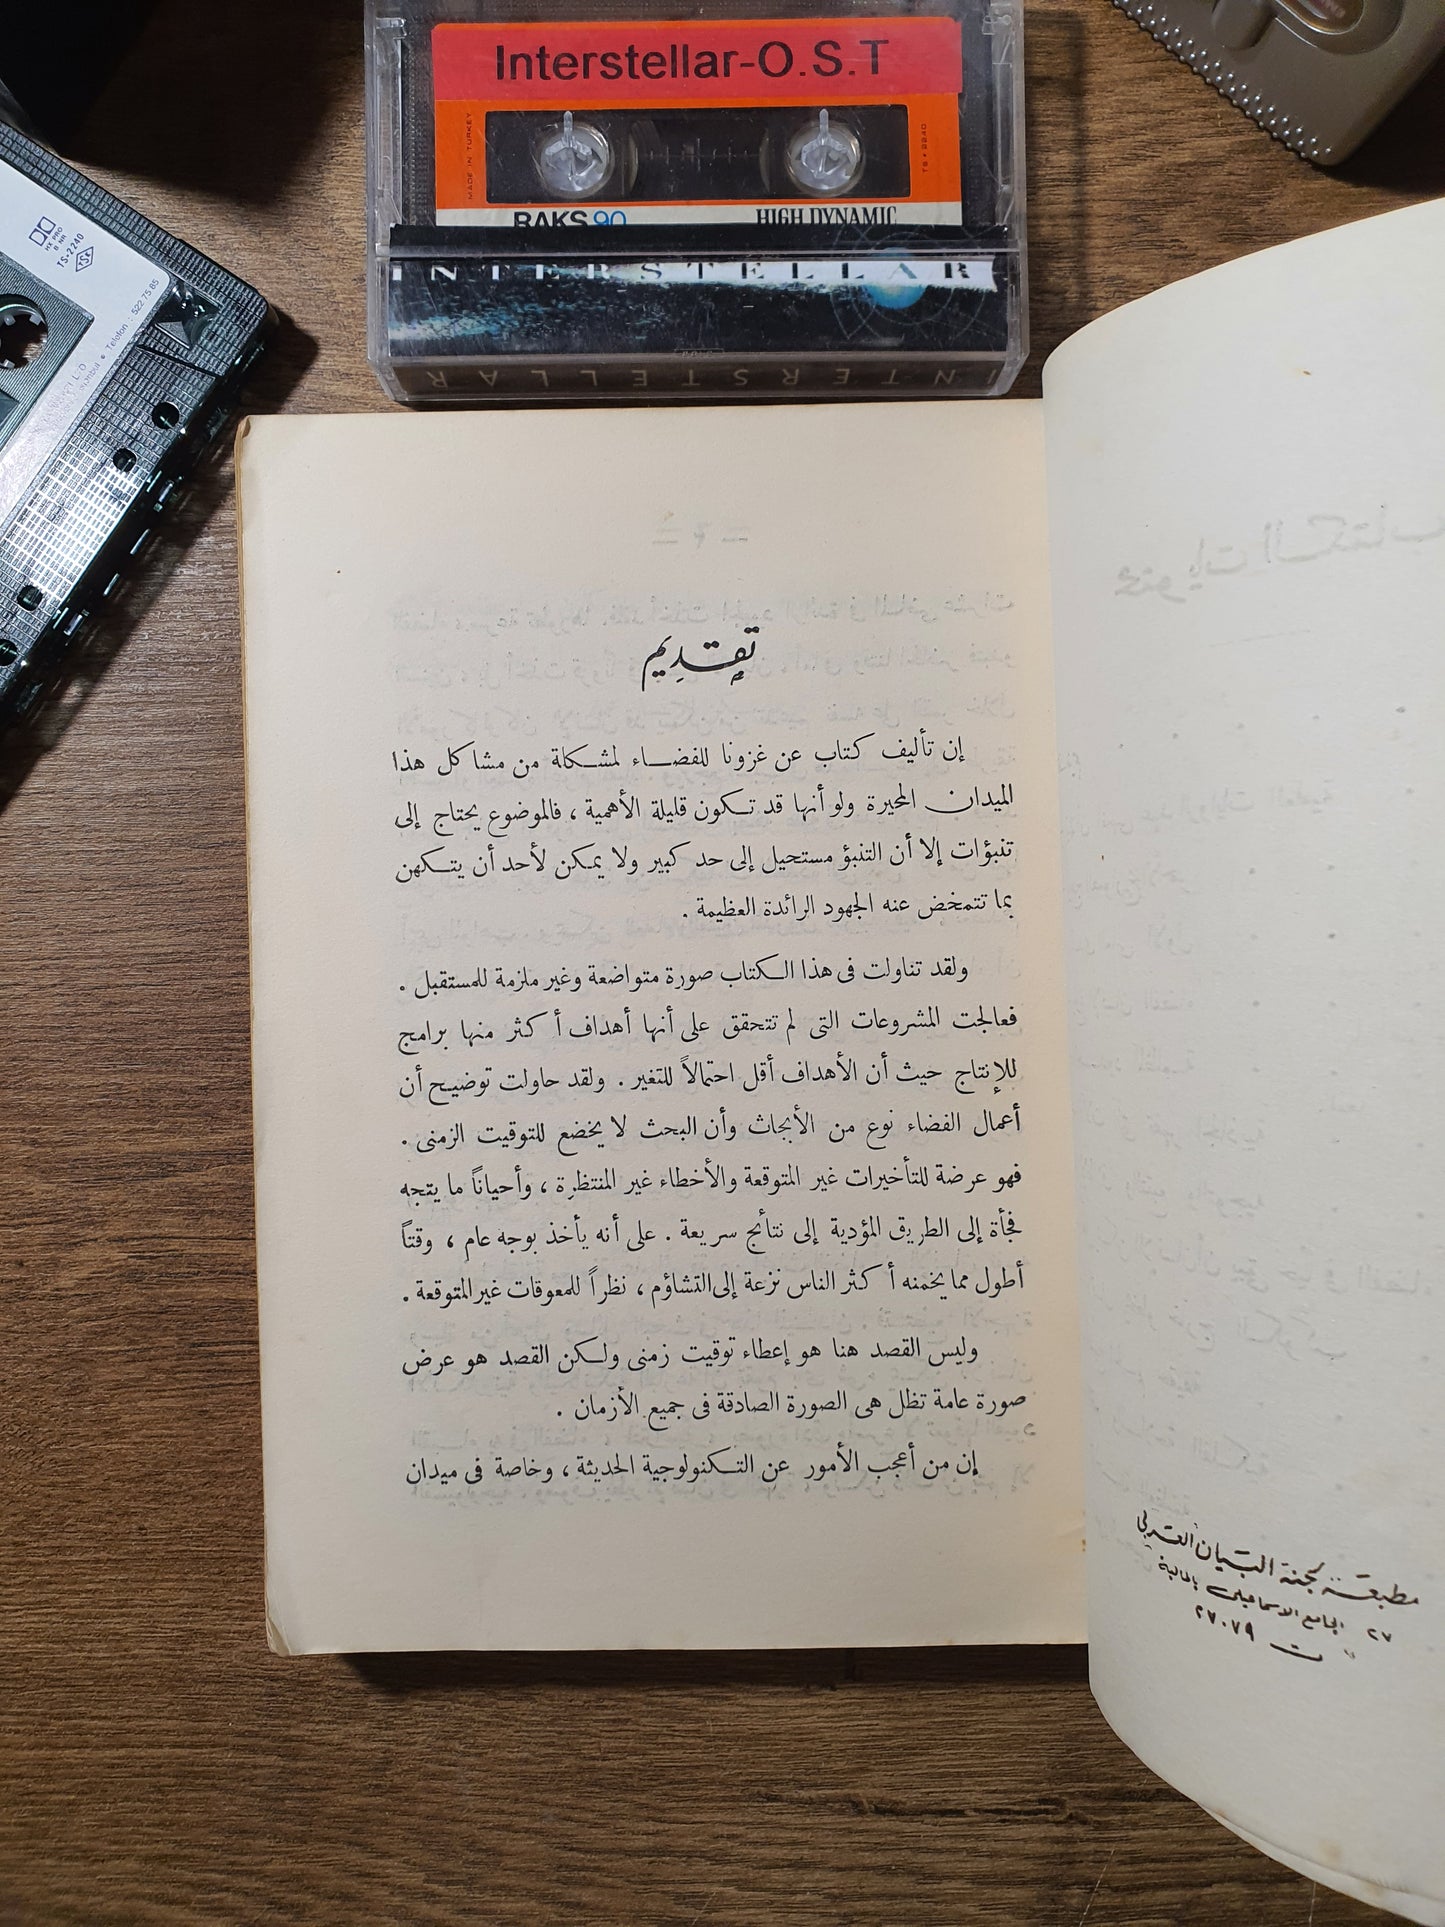 Interstellar-O.S.T
MADE IN TURKEY
TS • 2240
RAKS 90
HIGH DYNAMIC
INTERSTELLAR
INTERSTELLAR
HX PRO
B NR
TS-2240
TSE
Telefon : 522 75 85
تقديم
إن تأليف كتاب عن غزونا للفضاء لمشكلة من مشاكل هذا
الميدان المحيرة ولو أنها قد تكون قليلة الأهمية ، فالموضوع يحتاج إلى
تنبؤات إلا أن التنبؤ مستحيل إلى حد كبير ولا يمكن لأحد أن يتكهن
بما تتمخض عنه الجهود الرائدة العظيمة .
ولقد تناولت فى هذا الكتاب صورة متواضعة وغير ملزمة للمستقبل .
فعالجت المشروعات التى لم تتحقق على أنها أهداف أكثر منها برامج
للإنتاج حيث أن الأهداف أقل احتمالاً للتغير . ولقد حاولت توضيح أن
أعمال الفضاء نوع من الأبحاث وأن البحث لا يخضع للتوقيت الزمنى .
فهو عرضة للتأخيرات غير المتوقعة والأخطاء غير المنتظرة ، وأحياناً ما يتجه
فجأة إلى الطريق المؤدية إلى نتائج سريعة . على أنه يأخذ بوجه عام ، وقتاً
أطول مما يخمنه أكثر الناس نزعة إلى التشاؤم ، نظراً للمعوقات غير المتوقعة .
وليس القصد هنا هو إعطاء توقيت زمنى ولكن القصد هو عرض
صورة عامة تظل هى الصورة الصادقة فى جميع الأزمان .
إن من أعجب الأمور عن التكنولوجية الحديثة ، وخاصة فى ميدان
مطبعة لجنة البيان العربى
٢٧ الجامع الاسماعيلى بالمالية
ت ٢٧٠٧٩